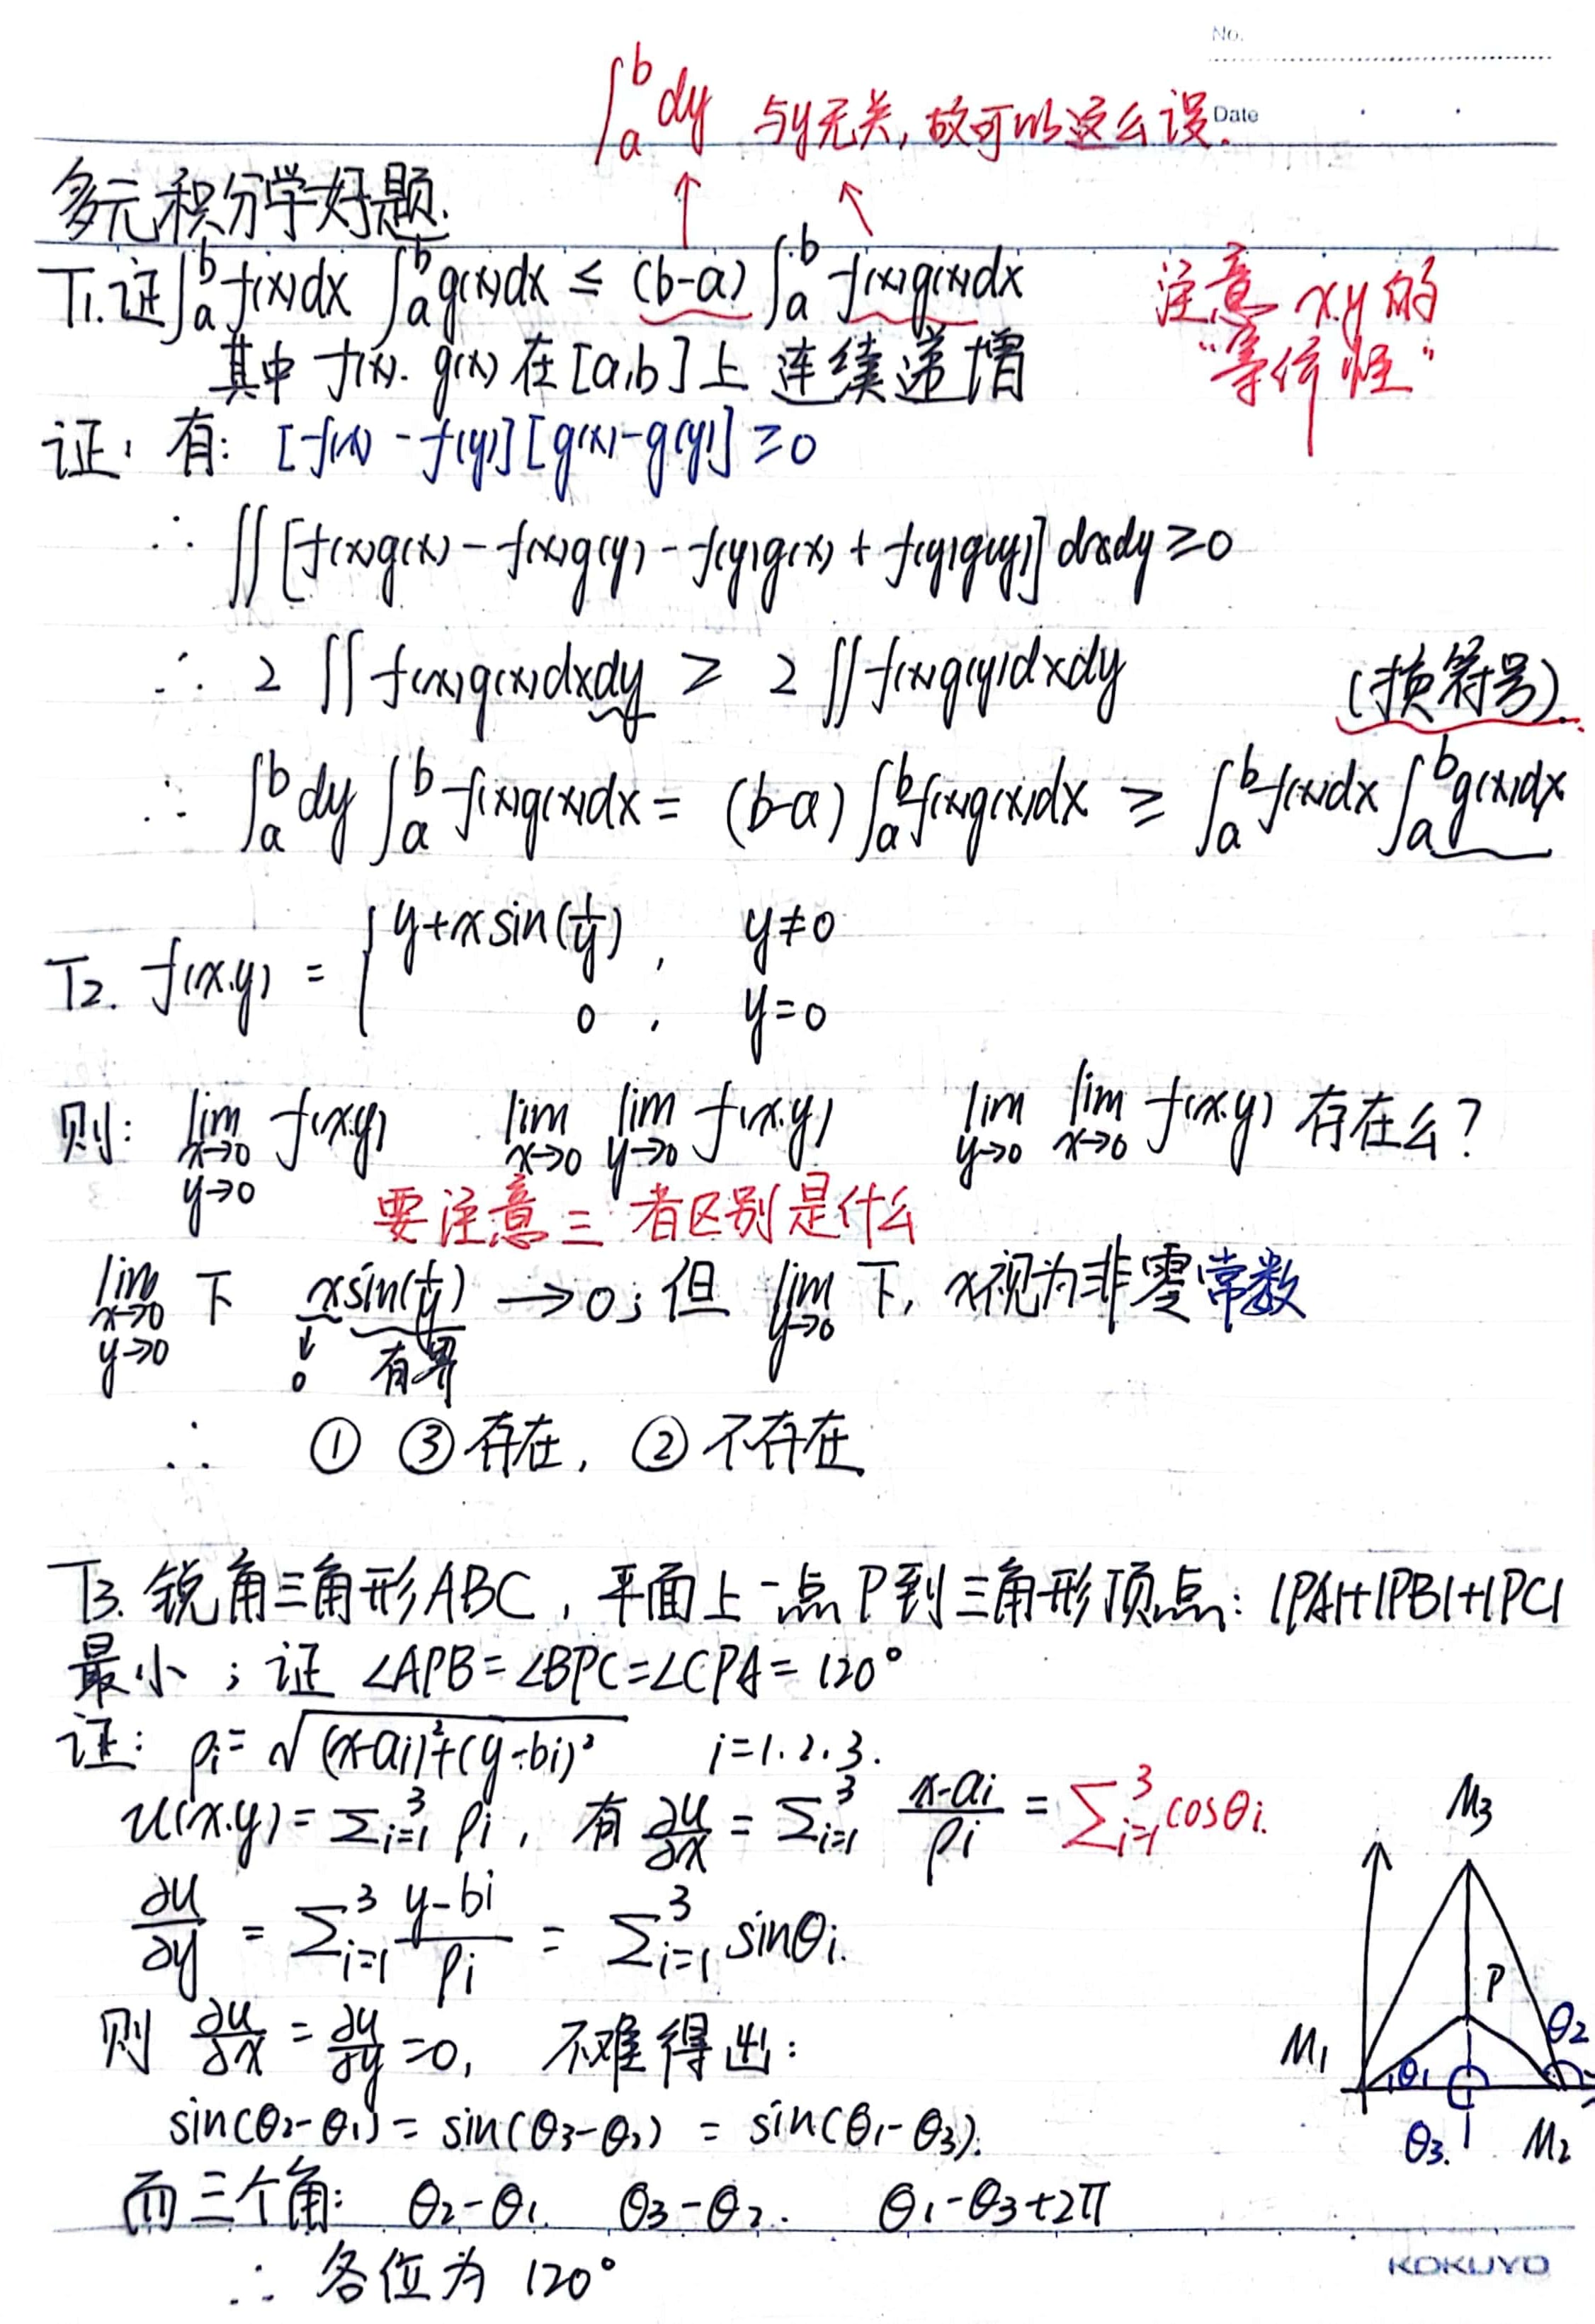 No.
Date
∫_a^b dy 与y无关,故可以这么设.
多元积分学好题.
T1.证∫_a^b f(x)dx ∫_a^b g(x)dx ≤ (b-a)∫_a^b f(x)g(x)dx
注意 x.y的
“等价性”
其中 f(x). g(x) 在[a,b]上 连续递增
证: 有: [f(x)-f(y)][g(x)-g(y)]≥0
∴ ∬[f(x)g(x)-f(x)g(y)-f(y)g(x)+f(y)g(y)]dxdy≥0
∴ 2∬f(x)g(x)dxdy ≥ 2∬f(x)g(y)dxdy (换符号).
∴ ∫_a^b dy∫_a^b f(x)g(x)dx = (b-a)∫_a^b f(x)g(x)dx ≥ ∫_a^b f(x)dx∫_a^b g(x)dx
T2. f(x.y) = { y+xsin(1/y), y≠0
0, y=0
则: lim_{x→0 y→0} f(x.y) lim_{x→0} lim_{y→0} f(x.y) lim_{y→0} lim_{x→0} f(x.y) 存在么?
要注意三者区别是什么
lim_{x→0 y→0} 下 xsin(1/y) →0; 但 lim_{y→0} 下, x视为非零常数
↓0 有界
∴ ① ③存在, ②不存在
T3. 锐角三角形ABC, 平面上一点P到三角形顶点: |PA|+|PB|+|PC|
最小; 证 ∠APB=∠BPC=∠CPA=120°
证: ρi=√((x-ai)²+(y-bi)²) i=1.2.3.
u(x.y)=Σ_{i=1}^3 ρi, 有 ∂u/∂x = Σ_{i=1}^3 (x-ai)/ρi = Σ_{i=1}^3 cosθi.
∂u/∂y = Σ_{i=1}^3 (y-bi)/ρi = Σ_{i=1}^3 sinθi.
则 ∂u/∂x = ∂u/∂y =0, 不难得出:
sin(θ2-θ1) = sin(θ3-θ2) = sin(θ1-θ3).
而三个角: θ2-θ1. θ3-θ2. θ1-θ3+2π
∴ 各位为 120°
M3
P
θ2
M1
θ1
θ3.
M2
KOKUYO